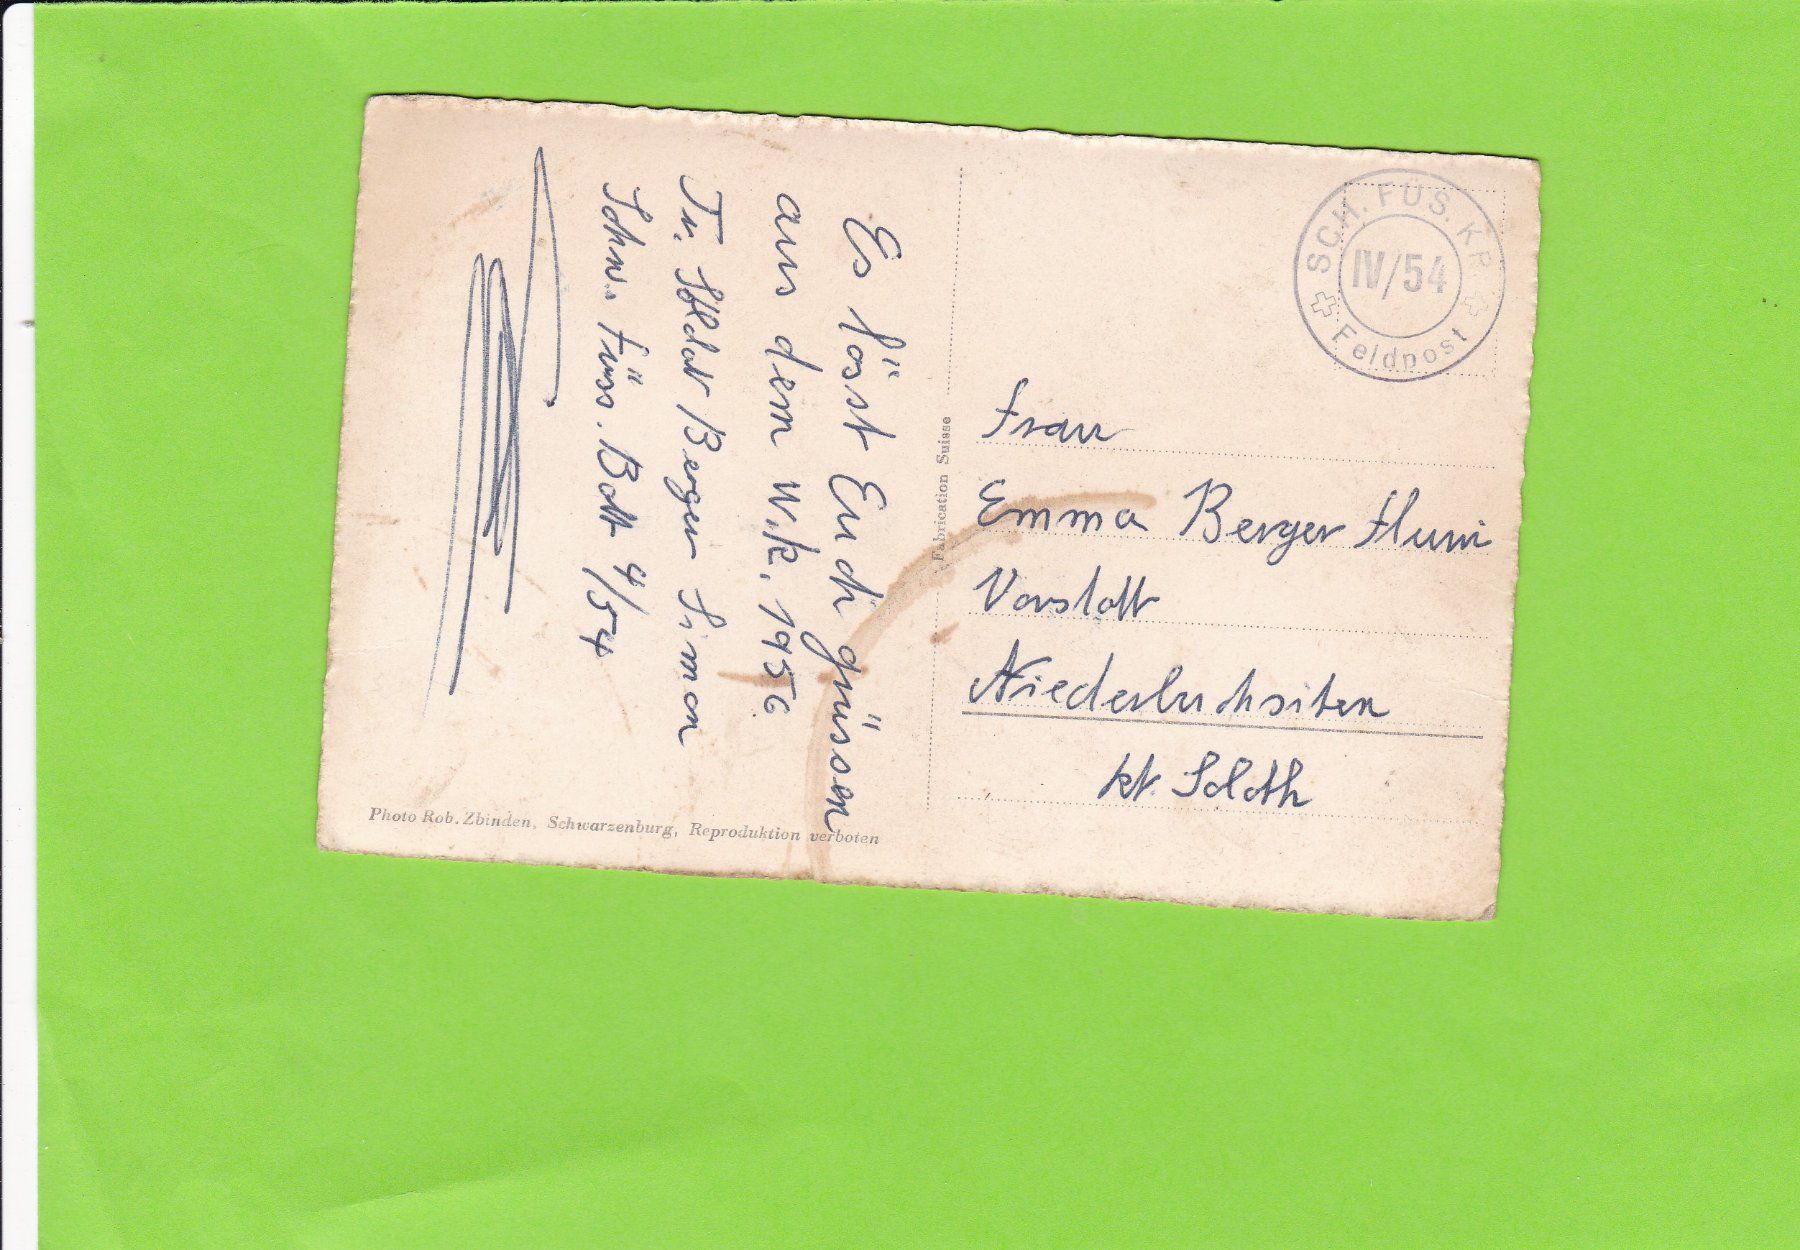 Es lösst Euch grüssen
aus dem W.k. 1956
Tr. Soldat Berger Simon
Schw. Füss. Batt 4/54
SCH. FÜS. KP.
IV/54
Feldpost
Frau
Emma Berger Flury
Vorstatt
Niederbuchsiten
kt. Soloth
Fabrication Suisse
Photo Rob. Zbinden, Schwarzenburg, Reproduktion verboten